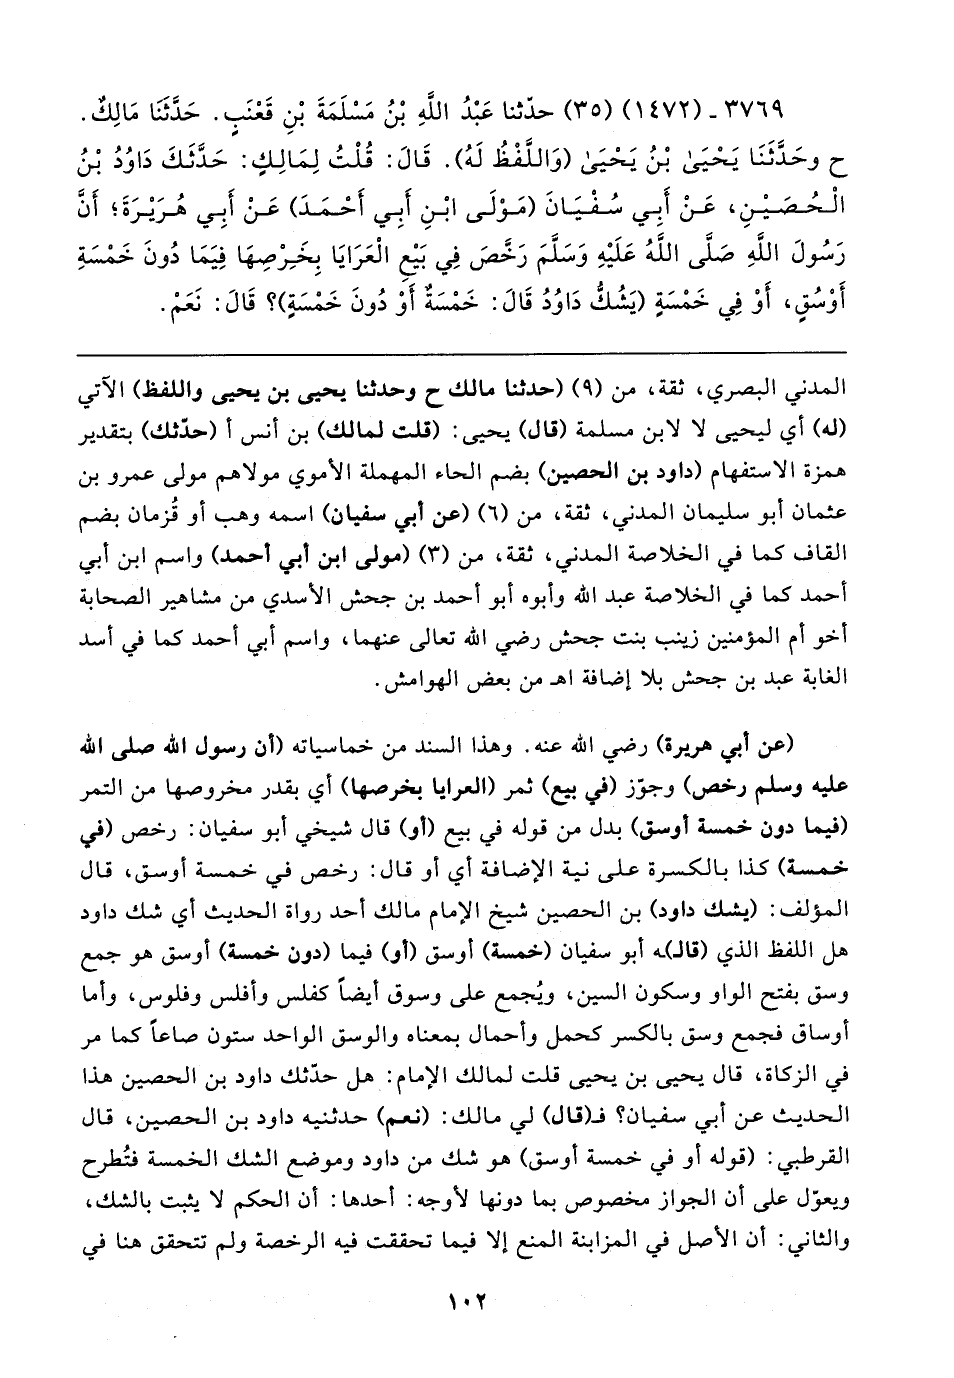 ٣٧٦٩ - (١٤٧٢) (٣٥) حدّثنا عَبْدُ اللَّهِ بْنُ مَسْلَمَةَ بْنِ قَعْنَبٍ. حَدَّثَنَا مَالِكٌ.
ح وحَدَّثَنَا يَحْيَىٰ بْنُ يَحْيَىٰ (وَاللَّفْظُ لَهُ). قَالَ: قُلْتُ لِمَالِكٍ: حَدَّثَكَ دَاوُدُ بْنُ
الْحُصَيْنِ، عَنْ أَبِي سُفْيَانَ (مَوْلَى ابْنِ أَبِي أَحْمَدَ) عَنْ أَبِي هُرَيْرَةَ؛ أَنَّ
رَسُولَ اللَّهِ صَلَّى اللَّهُ عَلَيْهِ وَسَلَّمَ رَخَّصَ فِي بَيْعِ الْعَرَايَا بِخَرْصِهَا فِيمَا دُونَ خَمْسَةِ
أَوْسُقٍ، أَوْ فِي خَمْسَةِ (يَشُكُّ دَاوُدُ قَالَ: خَمْسَةٌ أَوْ دُونَ خَمْسَةٍ)؟ قَالَ: نَعَمْ.
المدني البصري، ثقة، من (٩) (حدثنا مالك ح وحدثنا يحيى بن يحيى واللفظ) الآتي
(له) أي ليحيى لا لابن مسلمة (قال) يحيى: (قلت لمالك) بن أنس أ (حدّثك) بتقدير
همزة الاستفهام (داود بن الحصين) بضم الحاء المهملة الأموي مولاهم مولى عمرو بن
عثمان أبو سليمان المدني، ثقة، من (٦) (عن أبي سفيان) اسمه وهب أو قُزمان بضم
القاف كما في الخلاصة المدني، ثقة، من (٣) (مولى ابن أبي أحمد) واسم ابن أبي
أحمد كما في الخلاصة عبد الله وأبوه أبو أحمد بن جحش الأسدي من مشاهير الصحابة
أخو أم المؤمنين زينب بنت جحش رضي الله تعالى عنهما، واسم أبي أحمد كما في أسد
الغابة عبد بن جحش بلا إضافة اهـ من بعض الهوامش.
(عن أبي هريرة) رضي الله عنه. وهذا السند من خماسياته (أن رسول الله صلى الله
عليه وسلم رخص) وجوّز (في بيع) ثمر (العرايا بخرصها) أي بقدر مخروصها من التمر
(فيما دون خمسة أوسق) بدل من قوله في بيع (أو) قال شيخي أبو سفيان: رخص (في
خمسة) كذا بالكسرة على نية الإضافة أي أو قال: رخص في خمسة أوسق، قال
المؤلف: (يشك داود) بن الحصين شيخ الإمام مالك أحد رواة الحديث أي شك داود
هل اللفظ الذي (قالـ)ـه أبو سفيان (خمسة) أوسق (أو) فيما (دون خمسة) أوسق هو جمع
وسق بفتح الواو وسكون السين، ويُجمع على وسوق أيضاً كفلس وأفلس وفلوس، وأما
أوساق فجمع وسق بالكسر كحمل وأحمال بمعناه والوسق الواحد ستون صاعاً كما مر
في الزكاة، قال يحيى بن يحيى قلت لمالك الإمام: هل حدّثك داود بن الحصين هذا
الحديث عن أبي سفيان؟ فـ(قال) لي مالك: (نعم) حدثنيه داود بن الحصين، قال
القرطبي: (قوله أو في خمسة أوسق) هو شك من داود وموضع الشك الخمسة فتُطرح
ويعوّل على أن الجواز مخصوص بما دونها لأوجه: أحدها: أن الحكم لا يثبت بالشك،
والثاني: أن الأصل في المزابنة المنع إلا فيما تحققت فيه الرخصة ولم تتحقق هنا في
١٠٢